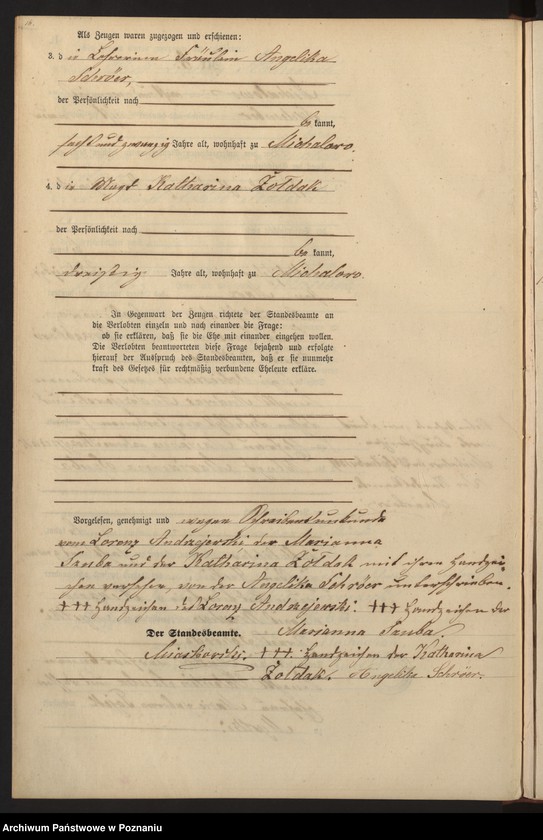 Als Zeugen waren zugezogen und erschienen:
3. die Lehrerin Fräulein Angelika
Schröer,
der Persönlichkeit nach
be kannt,
sechsundzwanzig Jahre alt, wohnhaft zu Michalowo.
4. die Magd Katharina Żołdak
der Persönlichkeit nach
be kannt,
dreißig Jahre alt, wohnhaft zu Michalowo.
In Gegenwart der Zeugen richtete der Standesbeamte an
die Verlobten einzeln und nach einander die Frage:
ob sie erklären, daß sie die Ehe mit einander eingehen wollen.
Die Verlobten beantworteten diese Frage bejahend und erfolgte
hierauf der Ausspruch des Standesbeamten, daß er sie nunmehr
kraft des Gesetzes für rechtmäßig verbundene Eheleute erkläre.
Vorgelesen, genehmigt und wegen Schreibensunkunde
vom Lorenz Andrzejewski der Marianna
Szuba und der Katharina Żołdak mit ihren Handzei-
chen versehen, von der Angelika Schröer unterschrieben.
+++ Handzeichen des Lorenz Andrzejewski. +++ Handzeichen der
Der Standesbeamte. Marianna Szuba.
+++. Handzeichen der Katharina
Żołdak. Angelika Schröer.
Archiwum Państwowe w Poznaniu